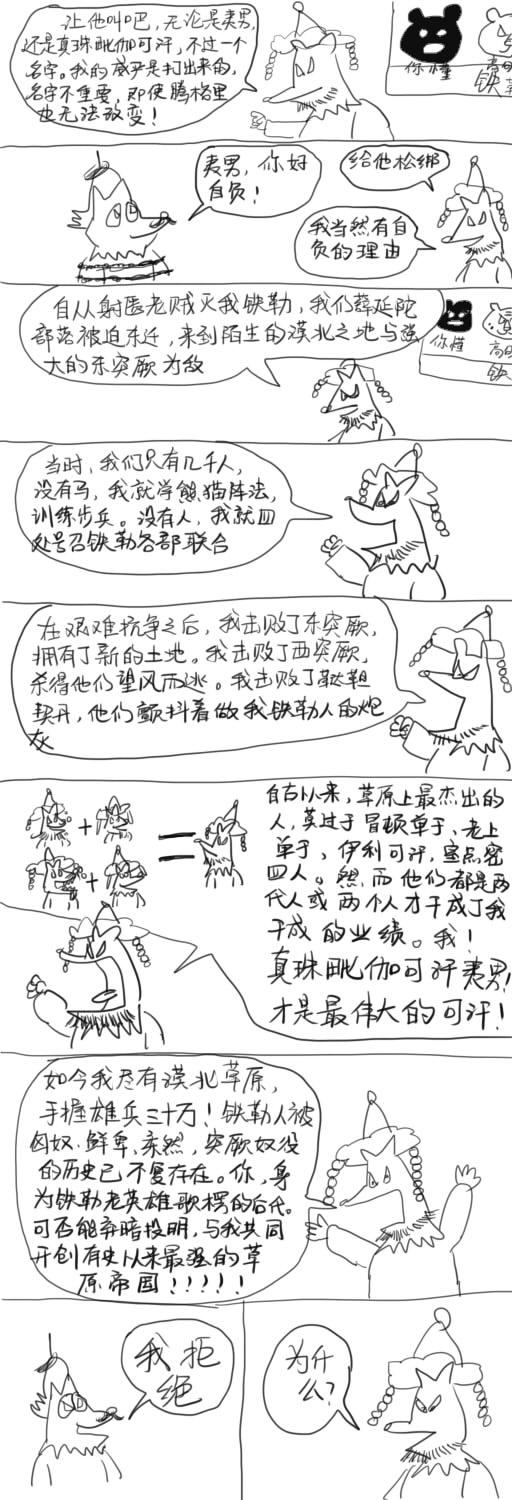 让他叫吧，无论是夷男，
还是真珠毗伽可汗，不过一个
名字。我的威严是打出来的，
名字不重要，即使腾格里
也无法改变！
你懂
铁
夷男，你好
自负！
给他松绑
我当然有自
负的理由
自从射匮老贼灭我铁勒，我们薛延陀
部落被迫东迁，来到陌生的漠北之地与强
大的东突厥为敌
你懂
铁
当时，我们只有几千人，
没有马，我就学熊猫阵法，
训练步兵。没有人，我就四
处号召铁勒各部联合
在艰难抗争之后，我击败了东突厥，
拥有了新的土地。我击败了西突厥，
杀得他们望风而逃。我击败了鞑靼
契丹，他们颤抖着做我铁勒人的炮
灰
自古以来，草原上最杰出的
人，莫过于冒顿单于、老上
单于、伊利可汗，室点密
四人。然而他们都是两
代人或两个人才干成了我
干成的业绩。我！
真珠毗伽可汗夷男！
才是最伟大的可汗！
如今我尽有漠北草原，
手握雄兵三十万！铁勒人被
匈奴、鲜卑、柔然，突厥奴役
的历史已不复存在。你，身
为铁勒老英雄歌楞的后代。
可否能弃暗投明，与我共同
开创有史以来最强的草
原帝国！！！！！
我拒
绝
为什
么？